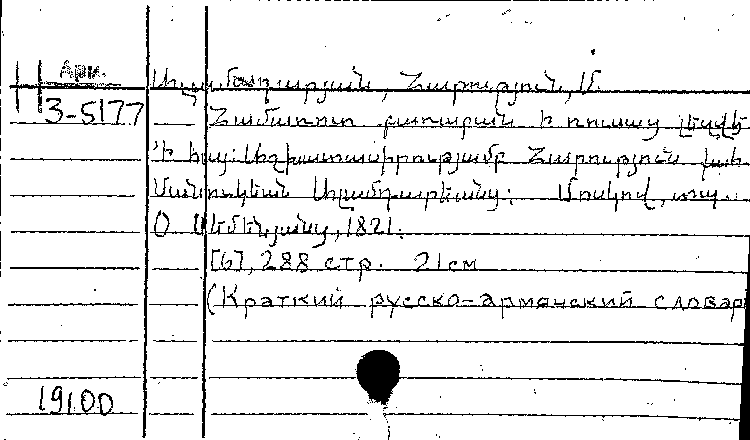 Арм.
3-5177
Ալամդարյան, Հարություն, Մ.
Համառօտ բառարան ի ռուսաց լեզվէ
'ի հայ: Աշխատասիրությամբ Հարություն
Մանուկեան Ալամդարեանց: Մոսկով, տպ.
Օ Սեմէնյանց, 1821.
[6], 288 стр. 21см
(Краткий русско-армянский словар
19100